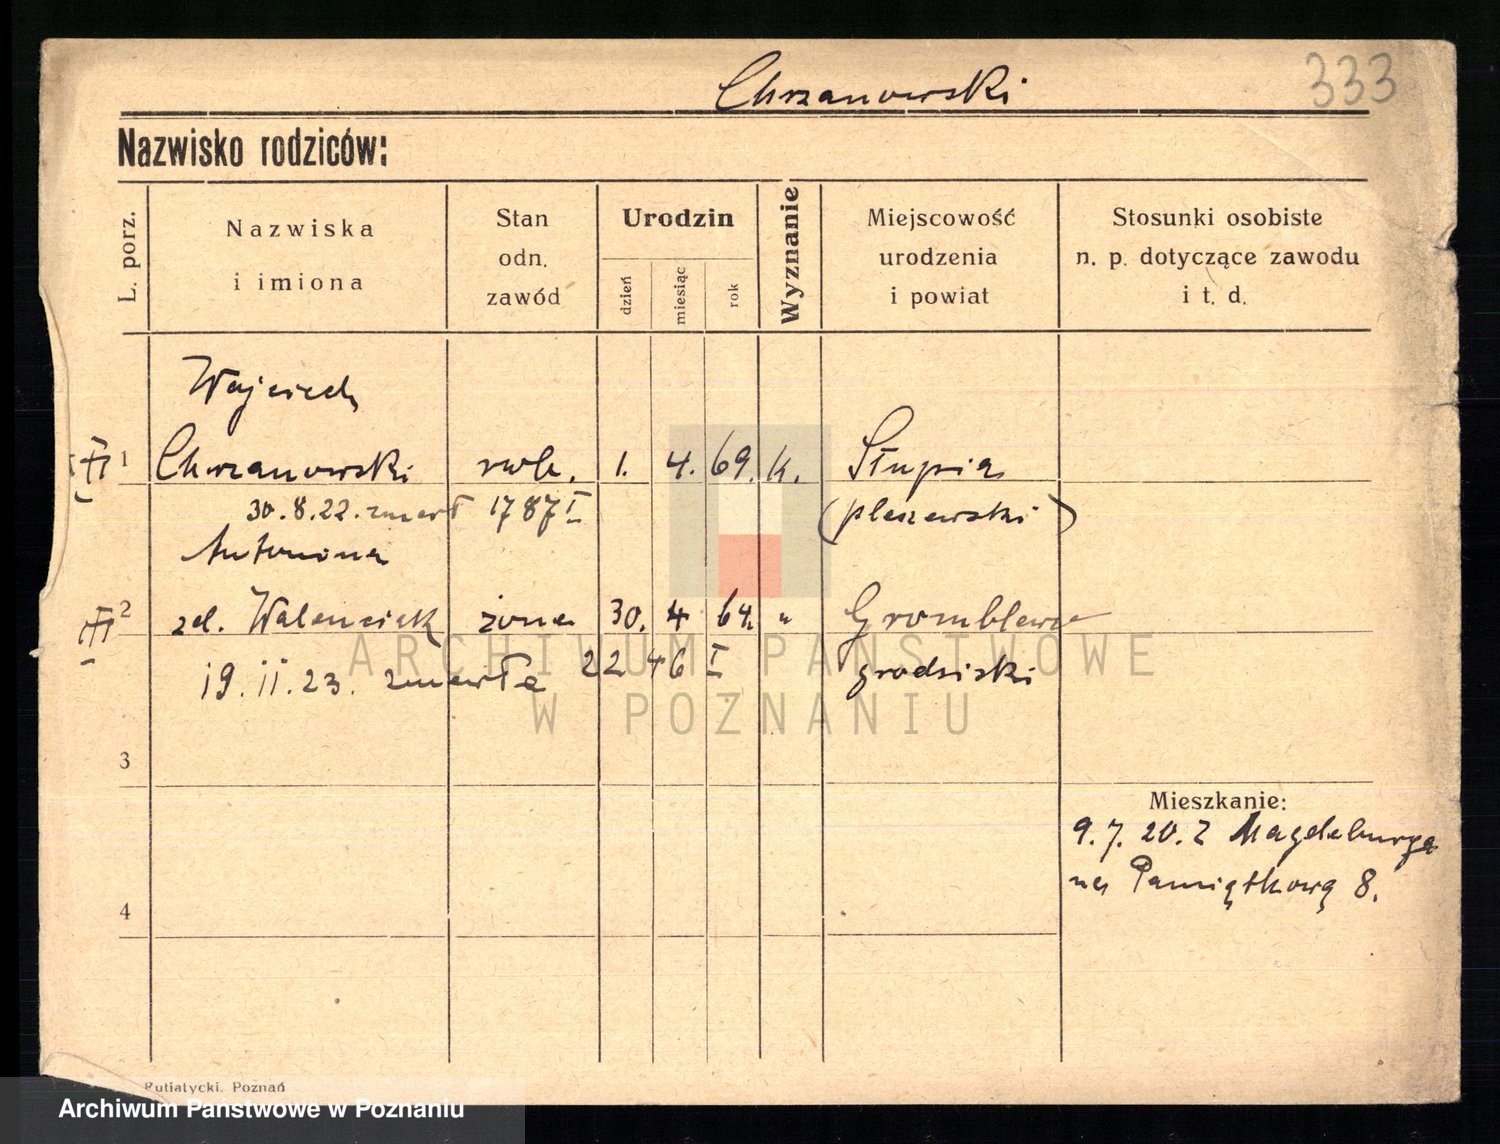 Chrzanowski
333
Nazwisko rodziców:
L. porz.
Nazwiska
i imiona
Stan
odn.
zawód
Urodzin
dzień
miesiąc
rok
Wyznanie
Miejscowość
urodzenia
i powiat
Stosunki osobiste
n. p. dotyczące zawodu
i t. d.
Wojciech
1 Chrzanowski rob. 1. 4. 69. k. Słupia
30.8.22. zmarł 1787 I (pleszewski)
Antonina
2 Walenciak żona 30. 4 64. " Gromblewo
19.11.23. zmarła 2246 I grodziski
3
Mieszkanie:
9.7.20. Z Magdeburga
na Pamiątkową 8.
4
Putiatycki, Poznań
ARCHIWUM PAŃSTWOWE
W POZNANIU
Archiwum Państwowe w Poznaniu